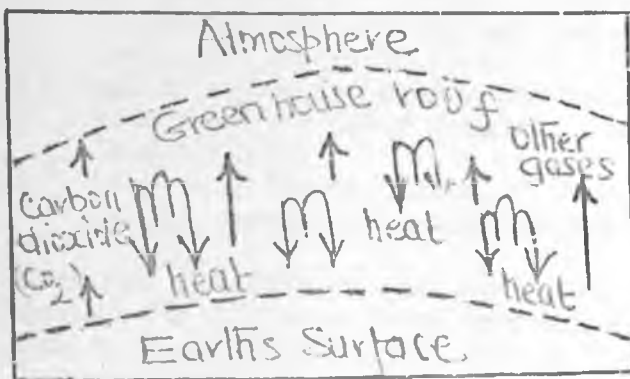 Atmosphere
Greenhouse roof
other
gases
carbon
dioxide
(CO2)
heat
heat
heat
Earth's Surface.